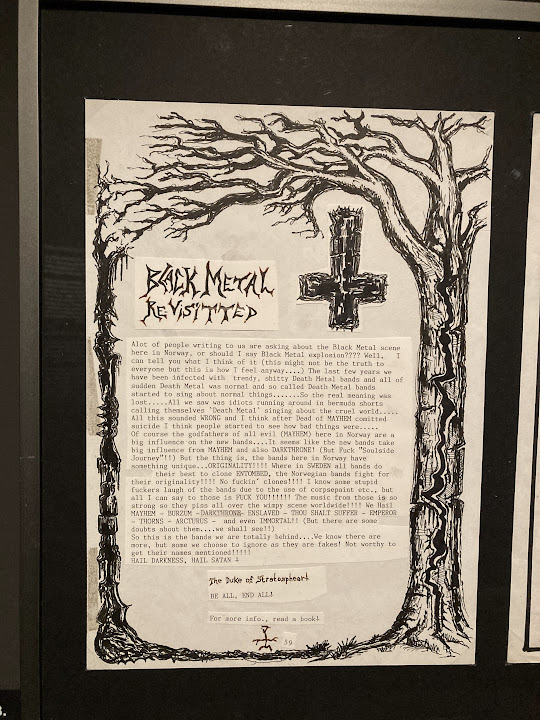 BLACK METAL
REVISITTED
Alot of people writing to us are asking about the Black Metal scene
here in Norway, or should I say Black Metal explosion???? Well, I
can tell you what I think of it (this might not be the truth to
everyone but this is how I feel anyway....) The last few years we
have been infected with trendy, shitty Death Metal bands and all of
sudden Death Metal was normal and so called Death Metal bands
started to sing about normal things.......So the real meaning was
lost.....All we saw was idiots running around in bermuda shorts
calling themselves 'Death Metal' singing about the cruel world.....
All this sounded WRONG and I think after Dead of MAYHEM comitted
suicide I think people started to see how bad things were.....
Of course the godfathers of all evil (MAYHEM) here in Norway are a
big influence on the new bands....It seems like the new bands take
big influence from MAYHEM and also DARKTHRONE! (But Fuck "Soulside
Journey"!!) But the thing is, the bands here in Norway have
something unique...ORIGINALITY!!!! Where in SWEDEN all bands do
their best to clone ENTOMBED, the Norwegian bands fight for
their originality!!!! No fuckin' clones!!!! I know some stupid
fuckers laugh of the bands due to the use of corpsepaint etc., but
all I can say to those is FUCK YOU!!!!!! The music from those is so
strong so they piss all over the wimpy scene worldwide!!!! We Hail
MAYHEM - BURZUM -DARKTHRONE- ENSLAVED - THOU SHALT SUFFER - EMPEROR
- THORNS - ARCTURUS - and even IMMORTAL!! (But there are some
doubts about them....we shall see!!)
So this is the bands we are totally behind....We know there are
more, but some we choose to ignore as they are fakes! Not worthy to
get their names mentioned!!!!!
HAIL DARKNESS, HAIL SATAN
The Duke of Stratosphear!
BE ALL, END ALL!
For more info., read a book!
59
3.